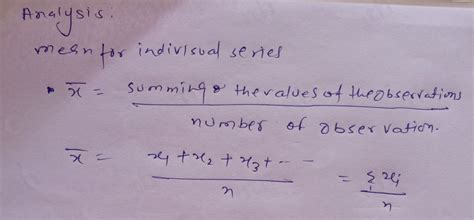 Analysis.
mean for indivisual series
• x̄ = summing the values of the observations
number of observation.
x̄ = x₁ + x₂ + x₃ + - - = Σxᵢ
n n